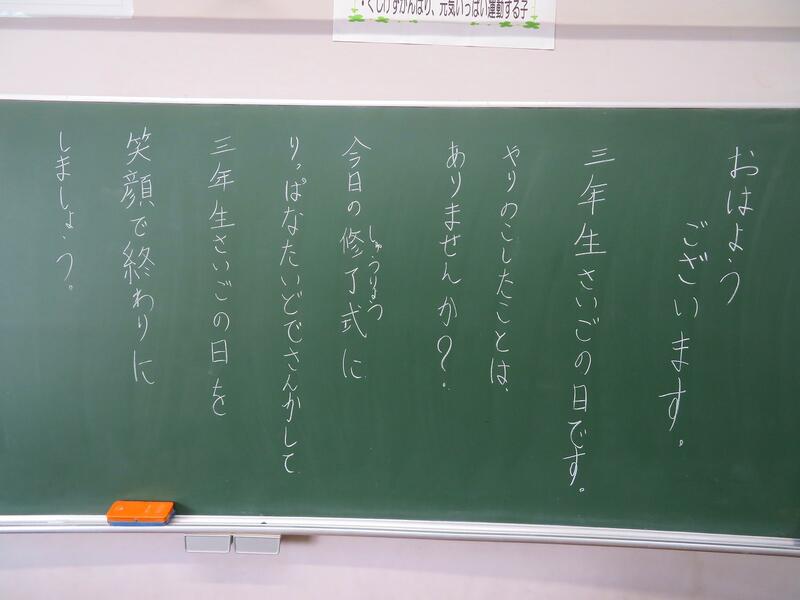 ・くじけずがんばり、元気いっぱい運動する子
おはよう
ございます。
三年生さいごの日です。
やりのこしたことは、
ありませんか?
今日の修了式に
しゅうりょう
りっぱなたいどでさんかして
三年生さいごの日を
笑顔で終わりに
しましょう。